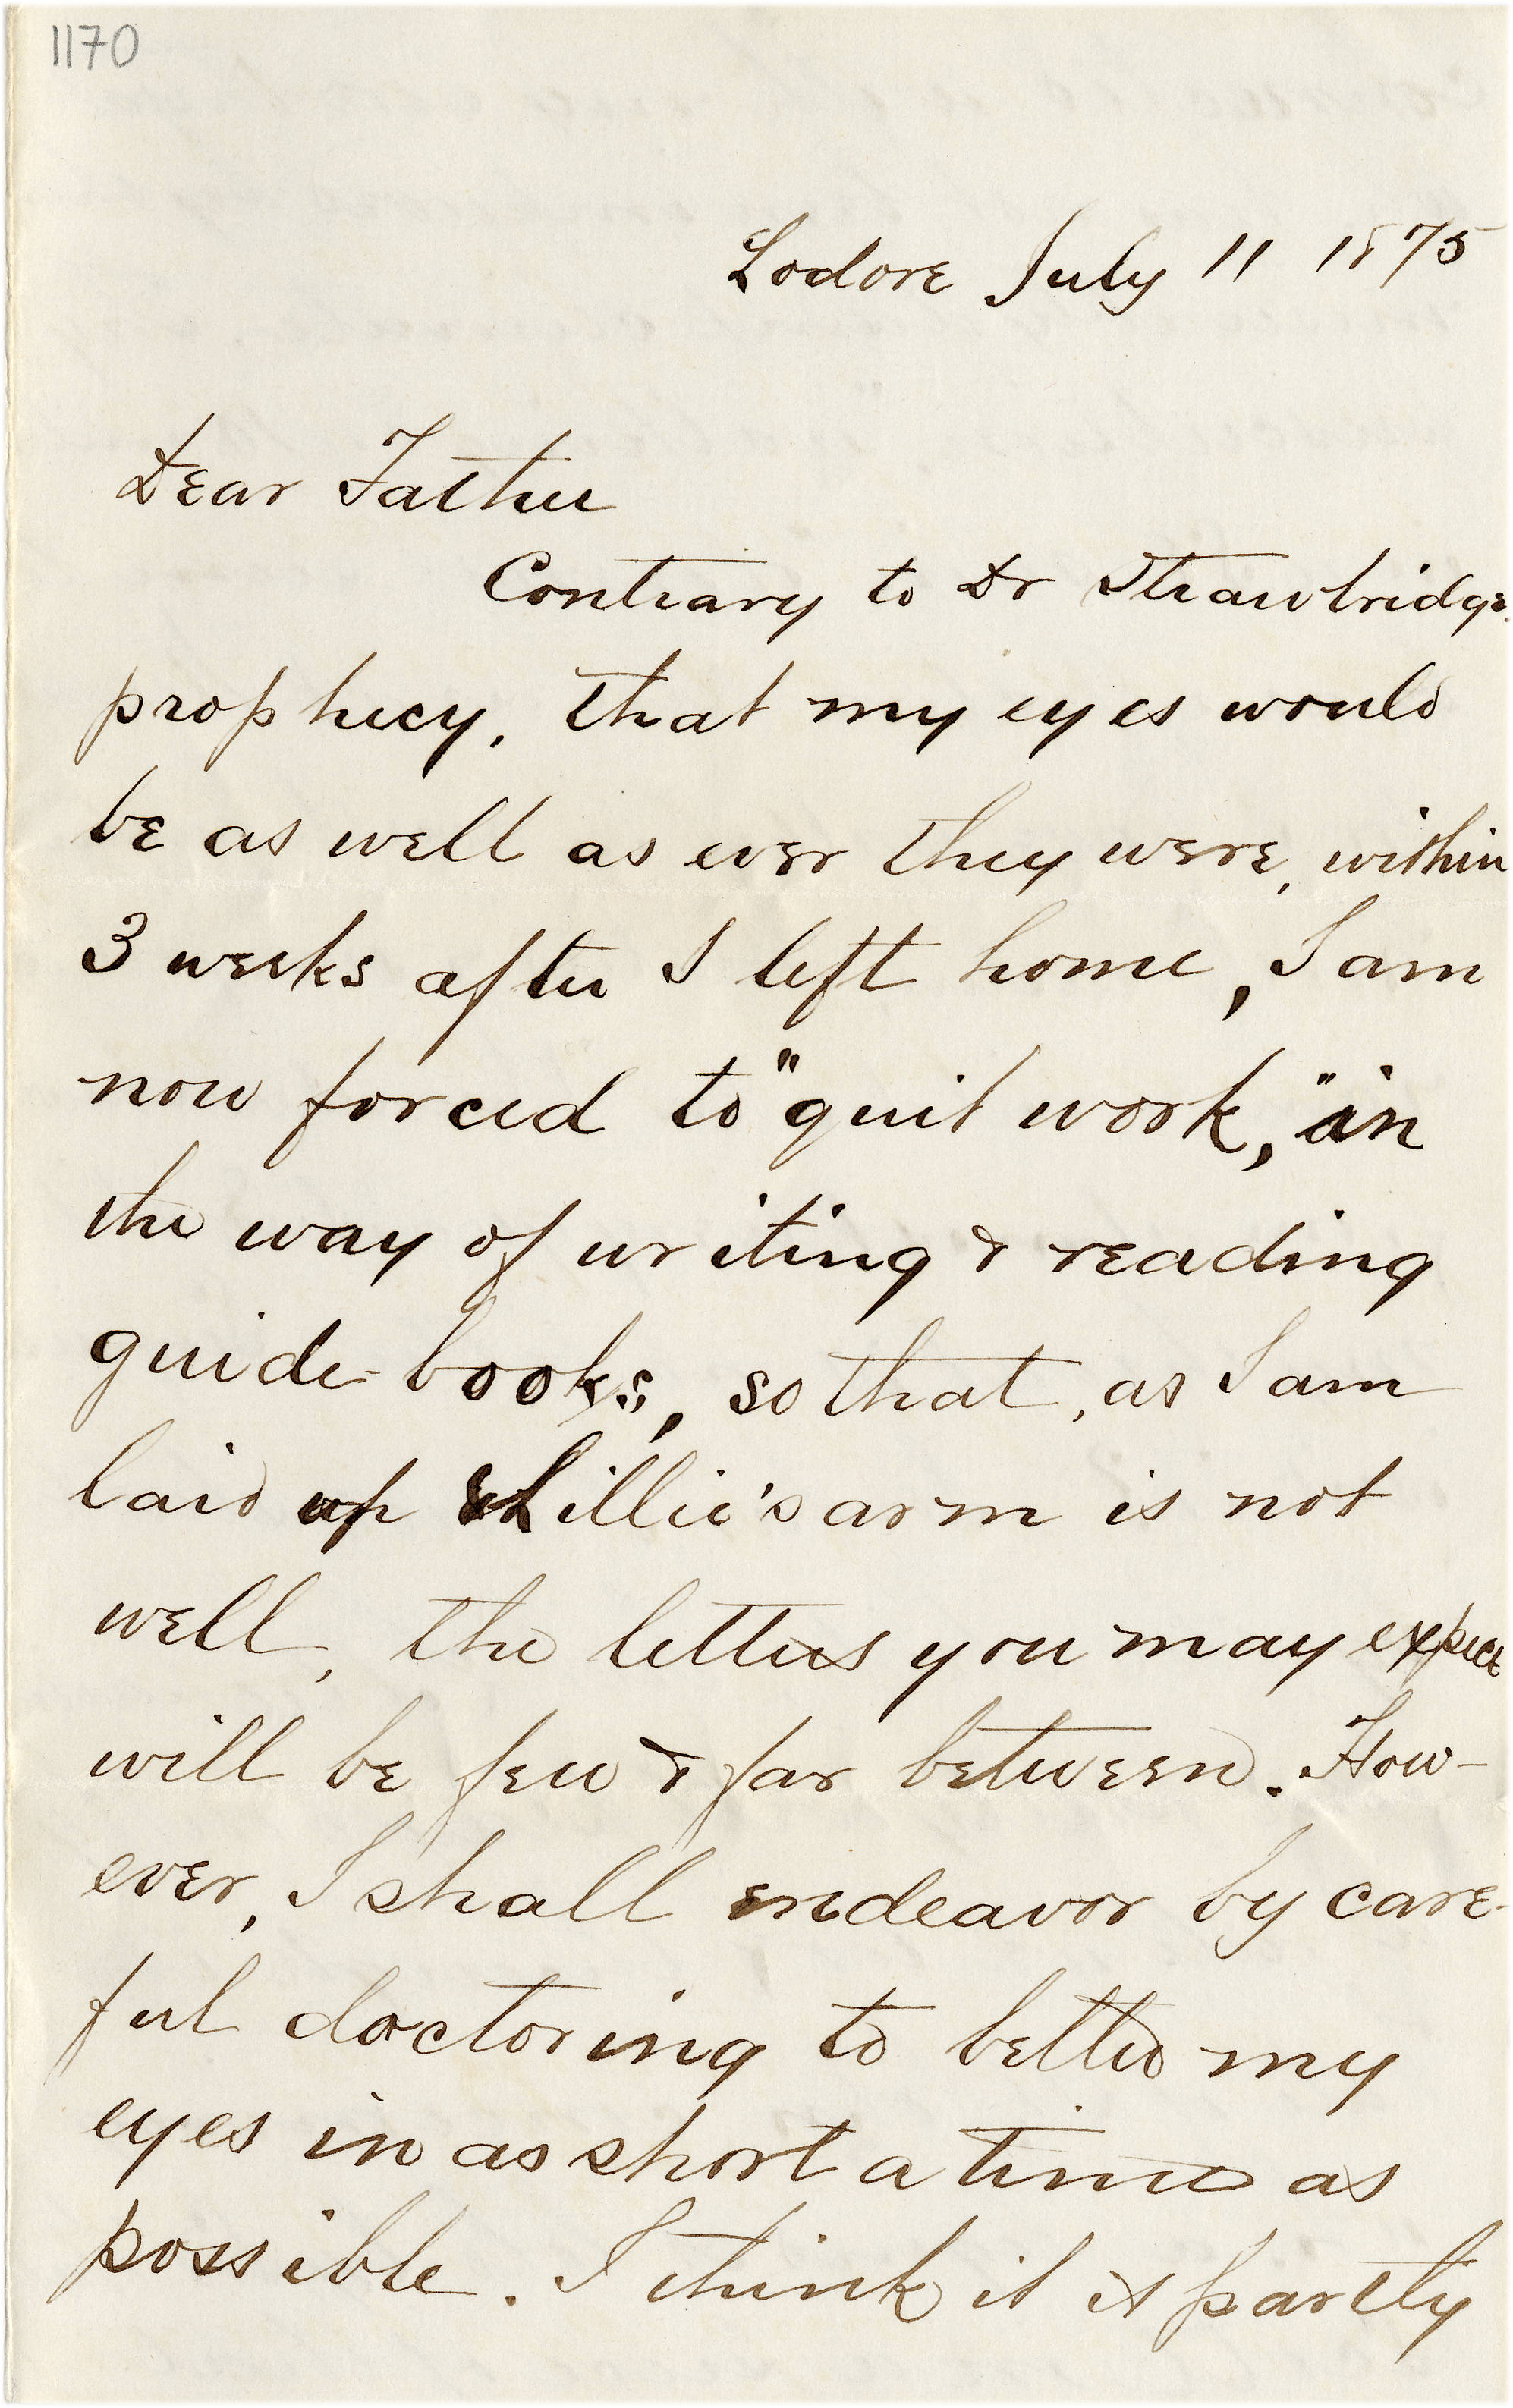 1170
Lodore July 11 1875
Dear Father
Contrary to Dr Strawbridge
prophecy, that my eyes would
be as well as ever they were, within
3 weeks after I left home, I am
now forced to "quit work," in
the way of writing & reading
guide-books, so that, as I am
laid up & Lillie's arm is not
well, the letters you may expect
will be few & far between. How-
ever, I shall endeavor by care-
ful doctoring to better my
eyes in as short a time as
possible. I think it is partly